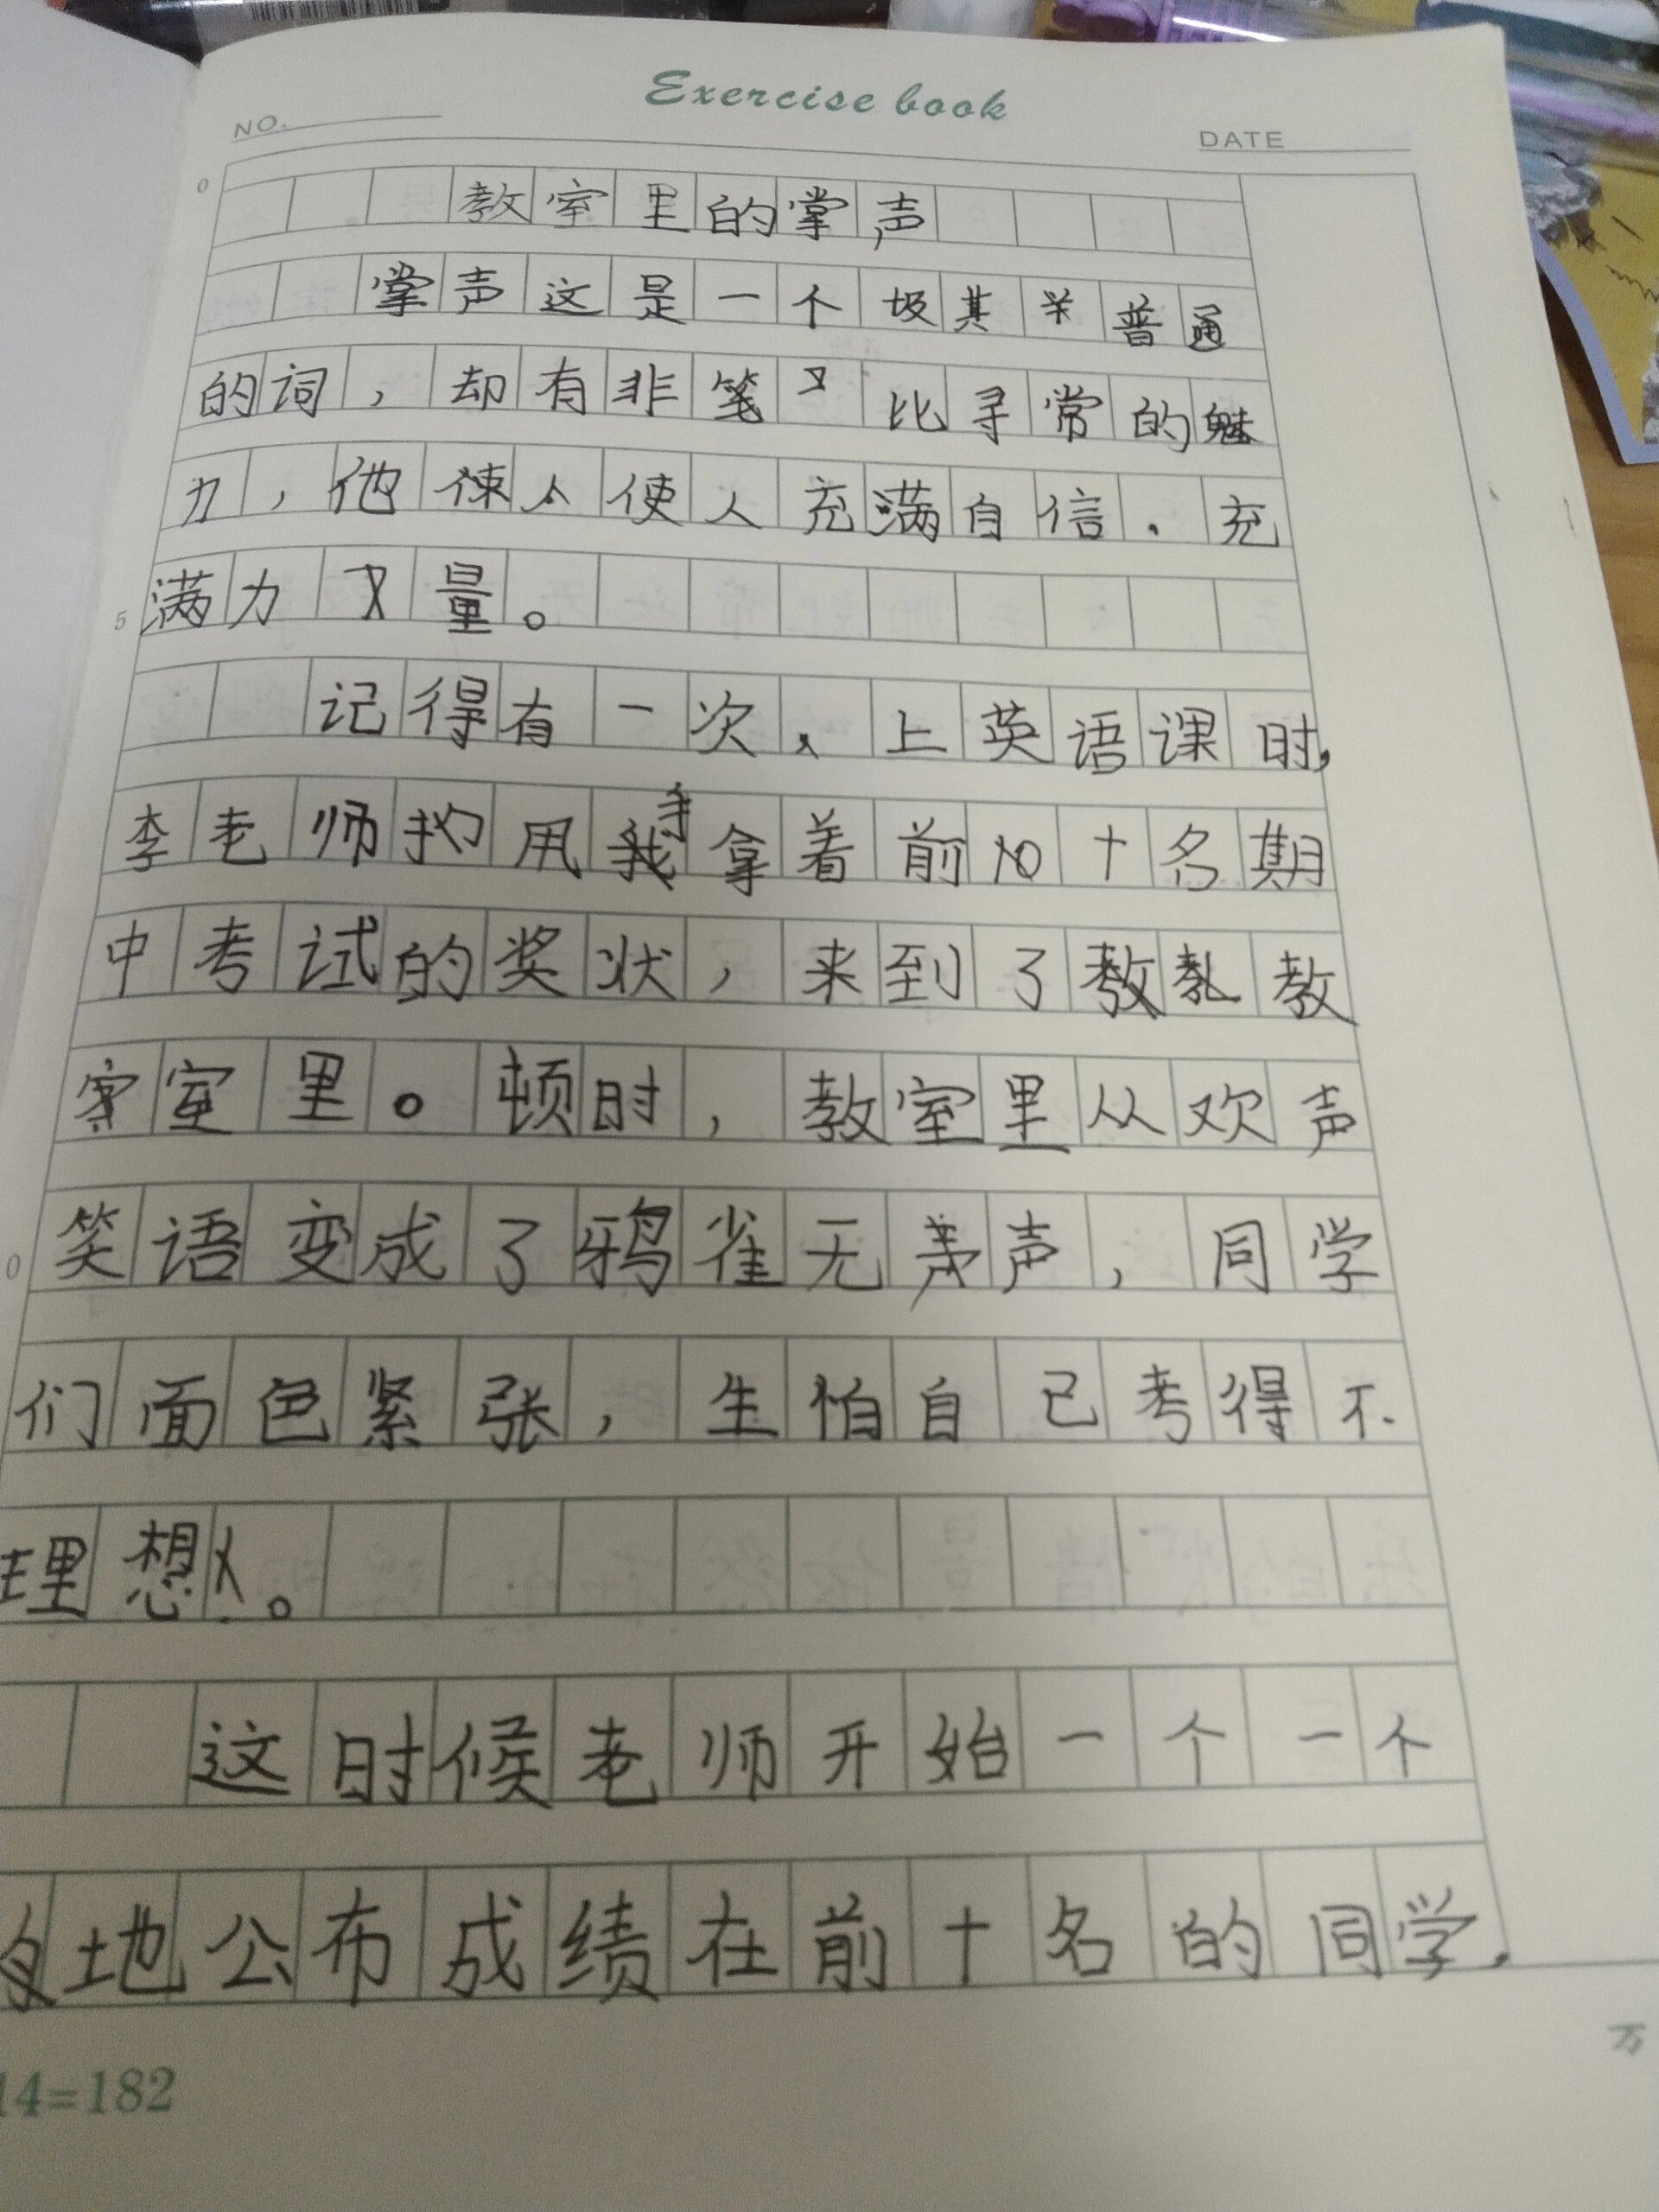 Exercise book
NO.
DATE
0
教室里的掌声
掌声这是一个极其普通
的词，却有非比寻常的魅
力，他使人充满自信，充
5
满力量。
记得有一次，上英语课时，
李老师用手拿着前十名期
中考试的奖状，来到了教
室里。顿时，教室里从欢声
0
笑语变成了鸦雀无声，同学
们面色紧张，生怕自己考得不
理想。
这时候老师开始一个一个
地公布成绩在前十名的同学，
14=182
万